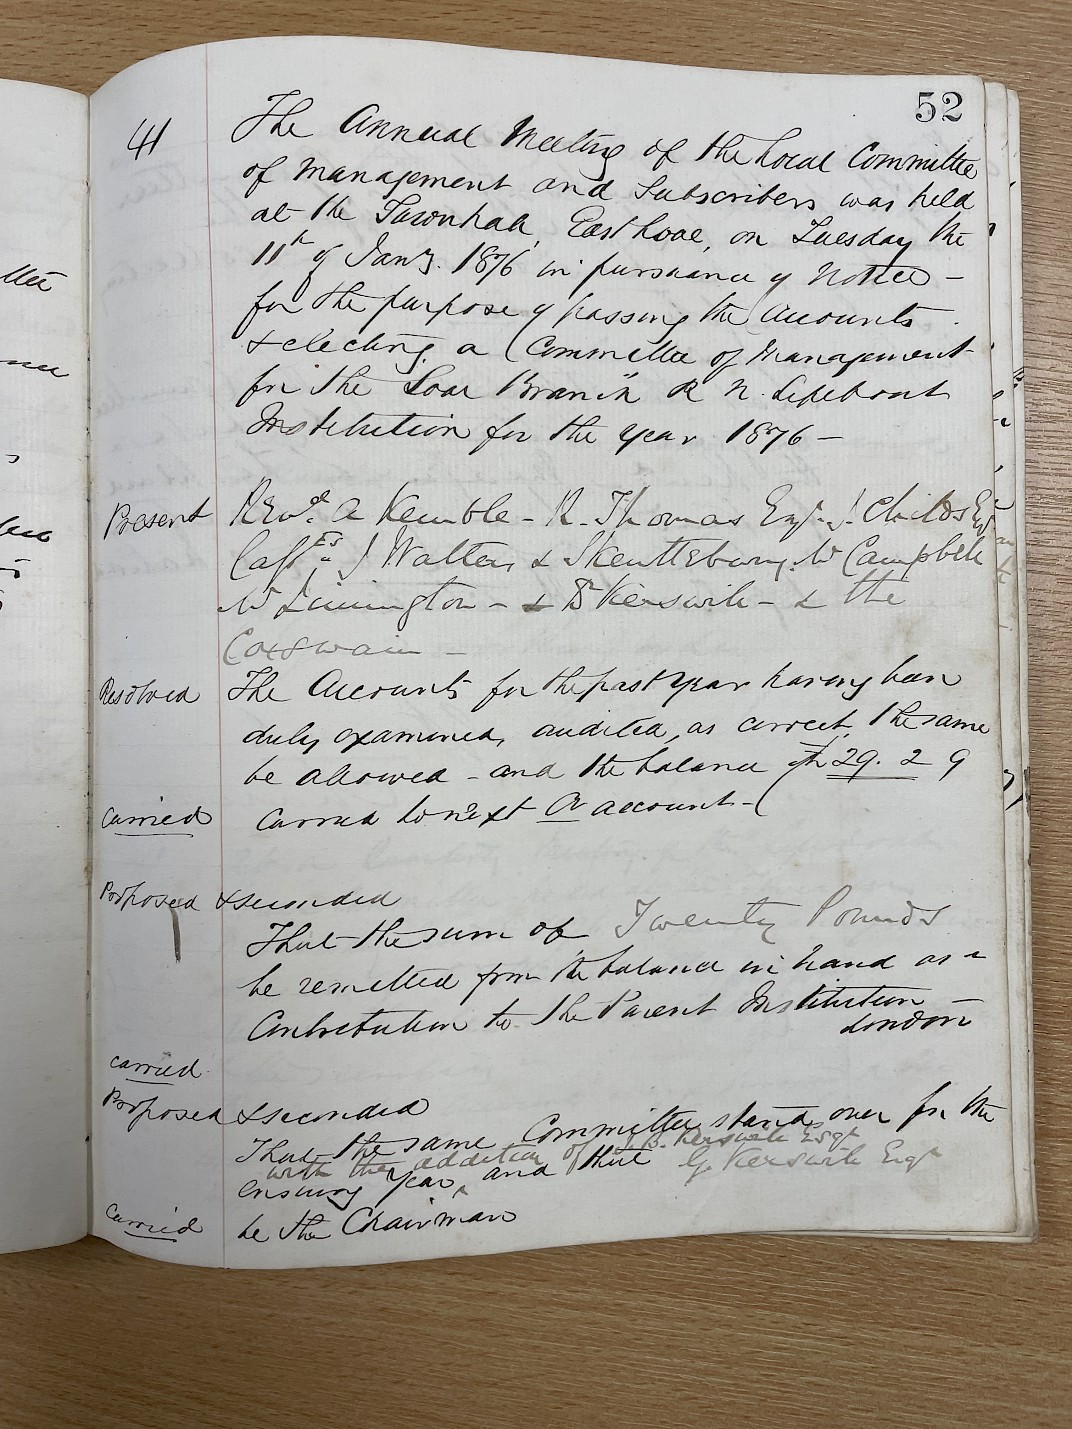 52
41
The Annual Meeting of the Local Committee
of Management and Subscribers was held
at the Townhall, East Looe, on Tuesday the
11th of Jany. 1876 in pursuance of Notice –
for the purpose of passing the Accounts
& electing a Committee of Management
for the Looe Branch R N. Lifeboat
Institution for the Year 1876 –
Present Revd. A Kemble – R. Thomas Esqr. J. Childs Esqr
Capts J Walters & Skentlebury. W Campbell
W Linnington – & Kerswill – & the
Coxswain –
Resolved The Accounts for the past Year having been
duly examined, audited, as correct, the same
be allowed – and the balance 29. 2 9
carried Carried to next account –
Proposed & seconded
That the sum of Twenty Pounds
be remitted from the balance in hand as a
Contribution to the Parent Institution –
London
carried
Proposed & seconded
That the same Committee stands over for the
with the addition of Kerswill Esqr
ensuing Year, and that G. Kerswill Esqr
carried be the Chairman